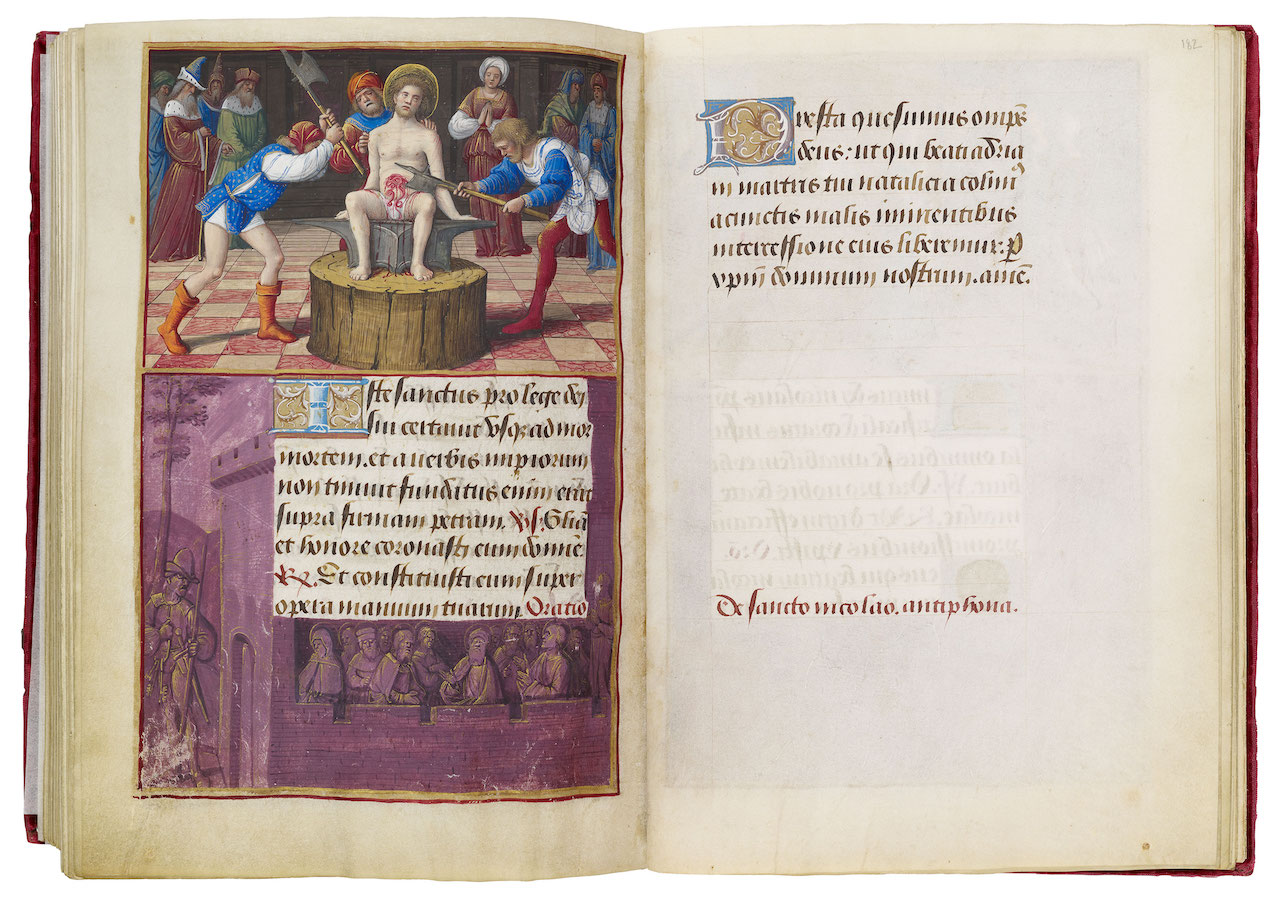 Iste sanctus pro lege dei
sui certavit usqȝ ad mor
mortem. et a verbis impiorum
non timuit funditus enim erat
supra firmam petram. ℣. Gliã
et honore coronasti eum domne.
℟. Et constituisti eum super
opera manuum tuarum. Oratio
182
Presta quesumus omps̃
deus: ut qui beati adria
ni martiris tui natalicia colim᷒
a cunctis malis iminentibus
intercessione eius liberemur. ꝑ
xpm̃ dominum nostrum. amẽ.
De sancto nicolao. antiphona.